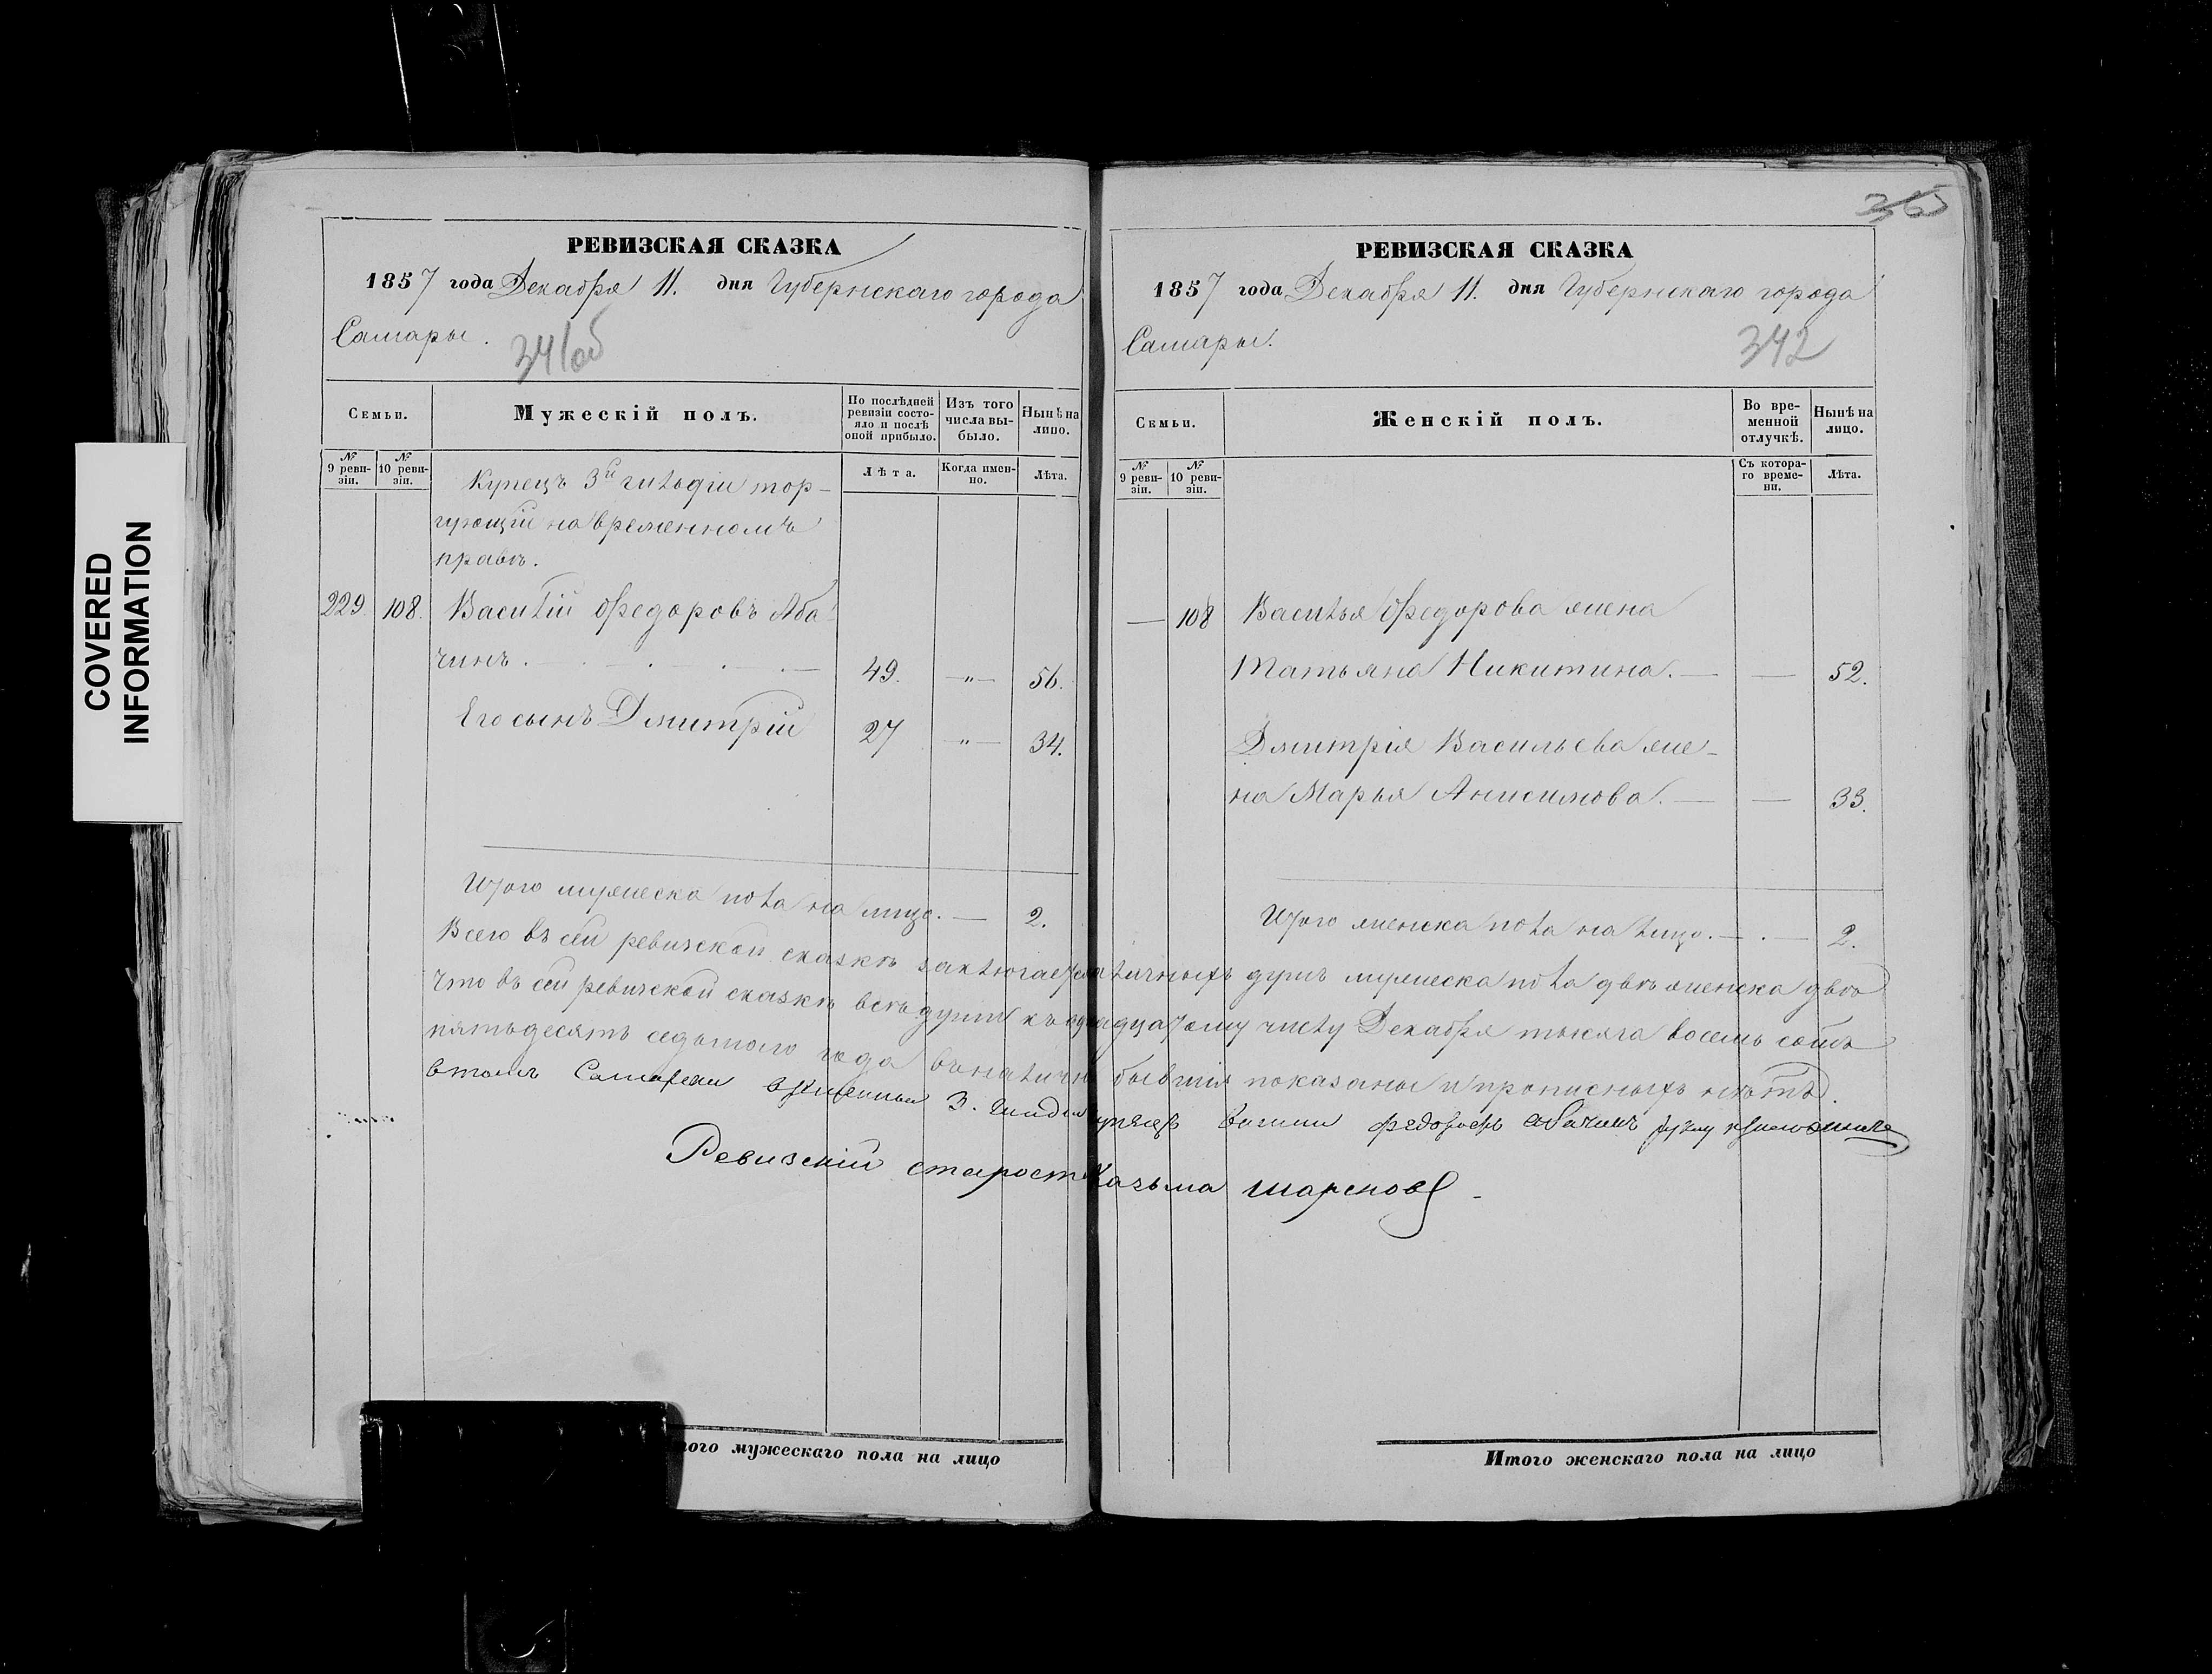 COVERED
INFORMATION
РЕВИЗСКАЯ СКАЗКА
1857 года Декабря 11. дня Губернскаго города
Самары.
341об
Семьи.
Мужескій полъ.
По послѣдней ревизіи состояло и послѣ оной прибыло.
Изъ того числа выбыло.
Нынѣ на лицо.
№ 9 ревизіи.
№ 10 ревизіи.
Лѣта.
Когда именно.
Лѣта.
Купецъ 3й гильдіи тор-
гующій на временномъ
правѣ.
229. 108. Василій Федоровъ Аба-
чинъ. 49. —"— 56.
Его сынъ Дмитрій 27 "— 34.
Итого мужеска пола на лицо. — 2.
365
РЕВИЗСКАЯ СКАЗКА
1857 года Декабря 11. дня Губернскаго города
Самары.
342
Семьи.
Женскій полъ.
Во временной отлучкѣ.
Нынѣ на лицо.
№ 9 ревизіи.
№ 10 ревизіи.
Съ котораго времени.
Лѣта.
— 108 Василья Федорова жена
Татьяна Никитина. — — 52.
Дмитрія Васильева же-
на Марья Анисимова. — — 33.
Итого женска пола на лицо. — . — 2.
Всего въ сей ревизской сказкѣ заключается наличныхъ душъ мужеска пола двѣ женска двѣ
Что въ сей ревизской сказкѣ всѣ души къ одинадцатому числу Декабря тысяча восемь сотъ
пятьдесятъ седьмого года въ наличн бывшія показаны и прописныхъ нѣтъ.
втомъ Самарски 3. Гильди купецъ Васили федоровъ абачинъ руку приложилъ
Ревизскій староста Казьма
Итого мужескаго пола на лицо
Итого женскаго пола на лицо